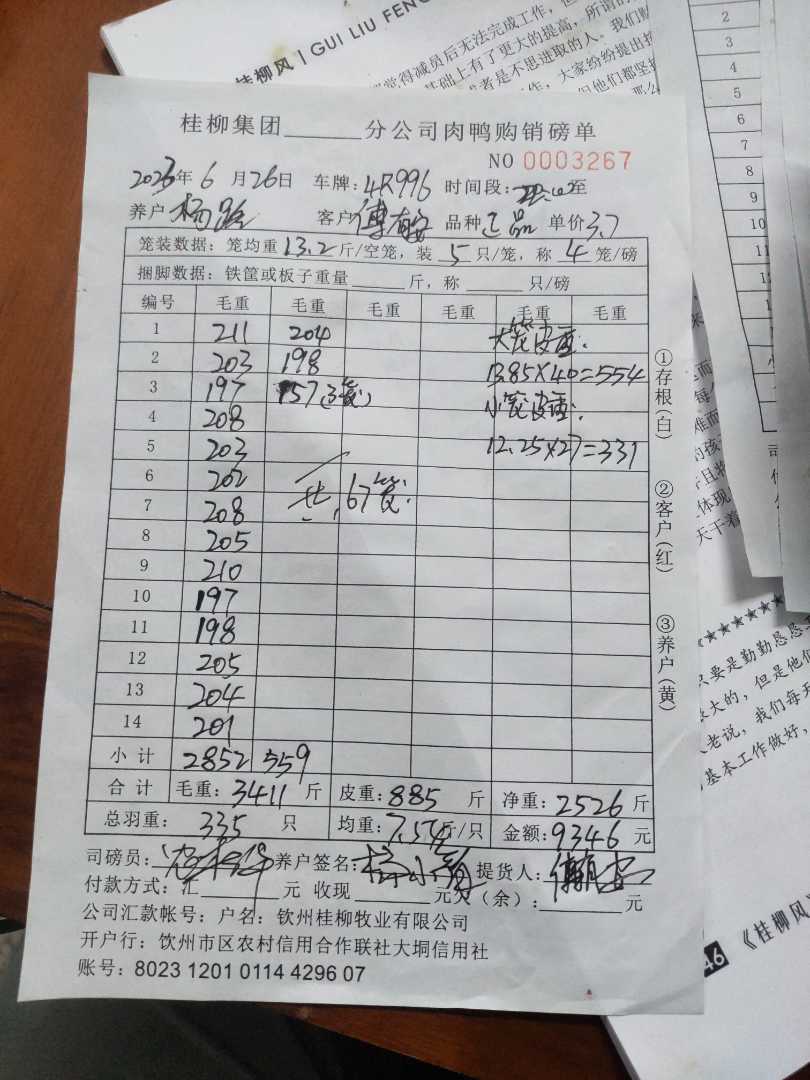 桂柳风 | GUI LIU FENG
桂柳集团______分公司肉鸭购销磅单
NO 0003267
2023年 6 月 26日 车牌: 4R996 时间段: 至
养户 杨 客户 傅 品种 正品 单价 3.7
笼装数据: 笼均重 13.2 斤/空笼, 装 5 只/笼, 称 4 笼/磅
捆脚数据: 铁筐或板子重量______斤, 称______只/磅
编号 毛重 毛重 毛重 毛重 毛重 毛重
1 211 204 大笼皮重:
2 203 198 13.85×40=554
3 197 157(3笼) 小笼皮重:
4 208
5 203 12.25×27=331
6 202
7 208 共: 67笼
8 205
9 210
10 197
11 198
12 205
13 204
14 201
小计 2852 559
合计 毛重: 3411 斤 皮重: 885 斤 净重: 2526 斤
总羽重: 335 只 均重: 7.54斤/只 金额: 9346 元
司磅员: 养户签名: 提货人:
付款方式: 汇______元 收现______元欠(余): ______元
公司汇款帐号: 户名: 钦州桂柳牧业有限公司
开户行: 钦州市区农村信用合作联社大垌信用社
账号: 8023 1201 0114 4296 07
①存根(白)
②客户(红)
③养户(黄)
46 《桂柳风》